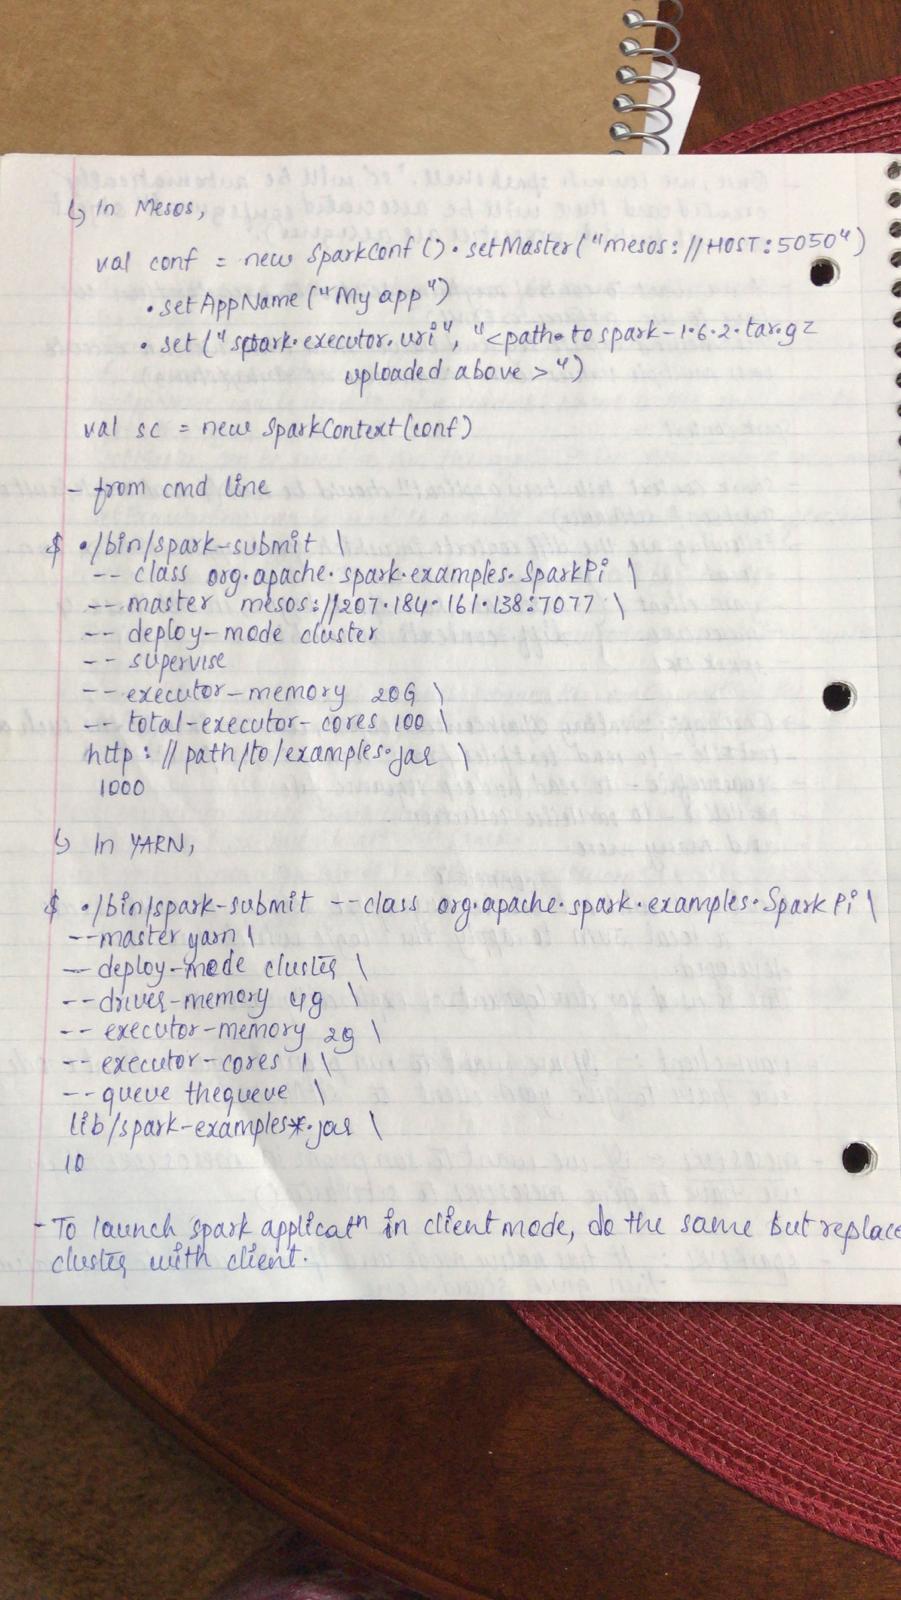 ↳ In Mesos,
val conf = new SparkConf().setMaster("mesos://HOST:5050")
.setAppName("My app")
.set("spark.executor.uri", "<path to spark-1.6.2.tar.gz
uploaded above>")
val sc = new SparkContext(conf)
- from cmd line
$ ./bin/spark-submit \
-- class org.apache.spark.examples.SparkPi \
-- master mesos://207.184.161.138:7077 \
-- deploy-mode cluster
-- supervise
-- executor-memory 20G \
-- total-executor-cores 100 \
http://path/to/examples.jar \
1000
↳ In YARN,
$ ./bin/spark-submit --class org.apache.spark.examples.SparkPi \
--master yarn \
-- deploy-mode cluster \
--driver-memory 4g \
-- executor-memory 2g \
-- executor-cores 1 \
--queue thequeue \
lib/spark-examples*.jar \
10
- To launch spark applicatn in client mode, do the same but replace
cluster with client.